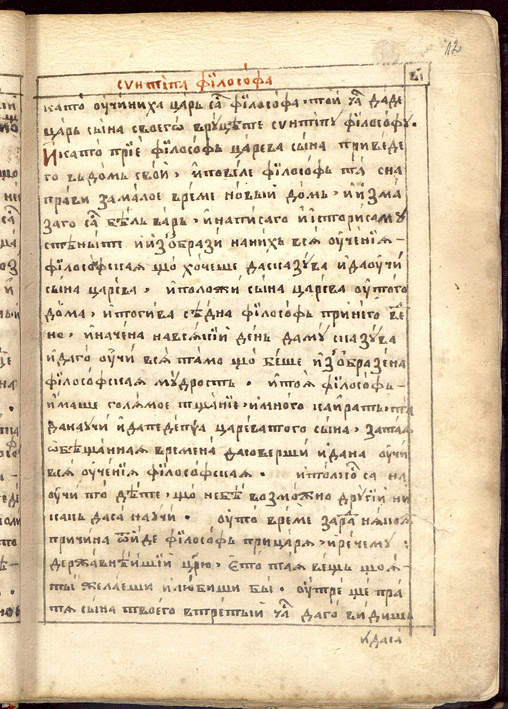 12
сѵнтїпа фїлософа
в҃і
като оучиниха царь са̑ фїлософа, той ча̑ даде
царь сына своегѡ вруцѣте сѵнтїпу фїлософу.
И като прїе фїлософь царева сына приведе
го въдомь свой, и повеле фїлософь та сна
прави замалое време новый домь, и измa
заго са̑ бѣль варь, и написаго и историсаму
стѣныте и изобрази нанихъ вся оученїя
фїлософская що хочеше дасказува и даоучи
сына царева, и положи сына царева оутого
дома, и тогива сѣдна фїлософь при него вѣ
не, и начена навсякїй день даму сказува
и даго оучи вся тамо що беше изображена
фїлософская мудрость. и тоя фїлософь
имаше голямое тщанїе, и много кайрать, та
данаучи и дапедепца царевaтого сына, затая
ѡбѣщанная времена дасоверши и дана оучи
вся оученїя фїлософская. и толко̑ са на
оучи то дѣте, що небѣ возможно другїй ни
кань даса научи. оуто врѣме зара̑ някоя
причина ѿйде фїлософь прицаря, и рече му:
державнѣйшїй црю, ето тая вещь що я
ты желаеши и любиши бы. оутре ще пра
тя сына твоего втретый ча̑ даго видишь
и даса